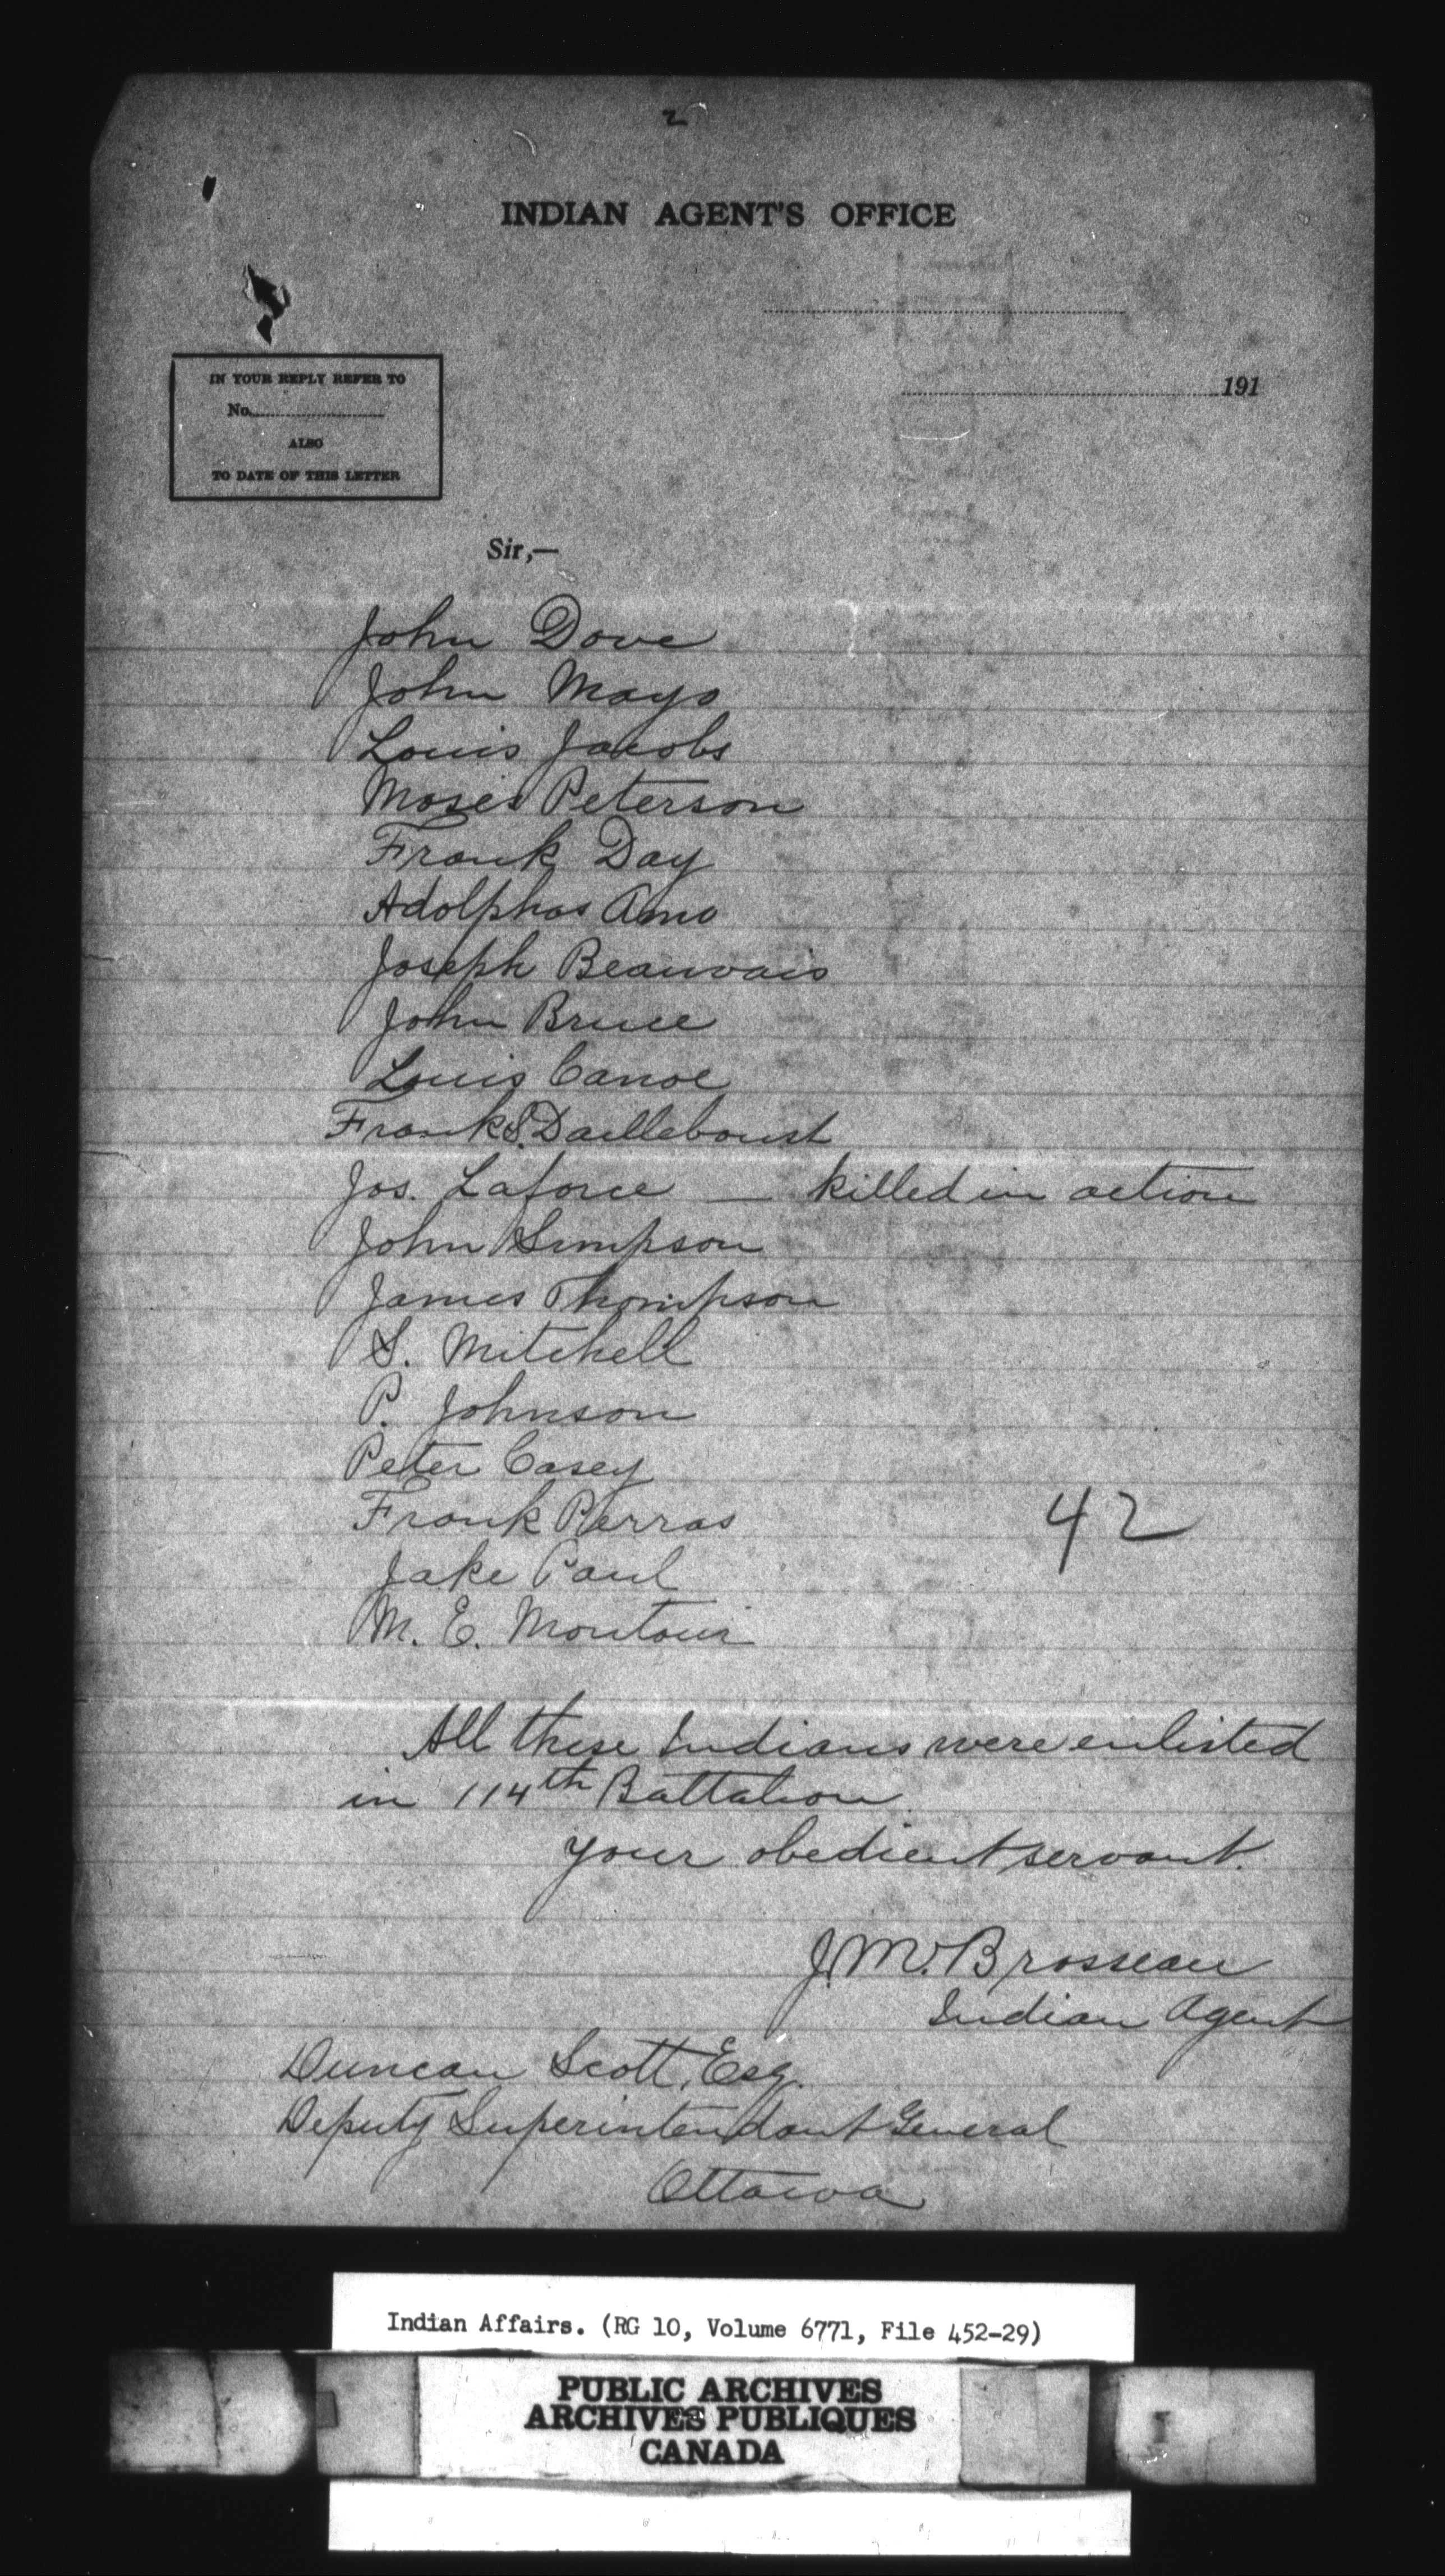 2
INDIAN AGENT'S OFFICE
191
IN YOUR REPLY REFER TO
No.
ALSO
TO DATE OF THIS LETTER
Sir,—
John Dove
John Mayo
Louis Jacobs
Moses Peterson
Frank Day
Adolphas Amo
Joseph Beauvais
John Bruce
Louis Canoe
Frank S. Dailleboust
Jos. Laforce — killed in action
John Simpson
James Thompson
S. Mitchell
P. Johnson
Peter Casey
Frank Perras
42
Jake Paul
M. E. Montour
All these Indians were enlisted
in 114th Battalion
your obedient servant.
J. M. Brosseau
Indian Agent
Duncan Scott, Esq.
Deputy Superintendant General
Ottawa
Indian Affairs. (RG 10, Volume 6771, File 452-29)
PUBLIC ARCHIVES
ARCHIVES PUBLIQUES
CANADA